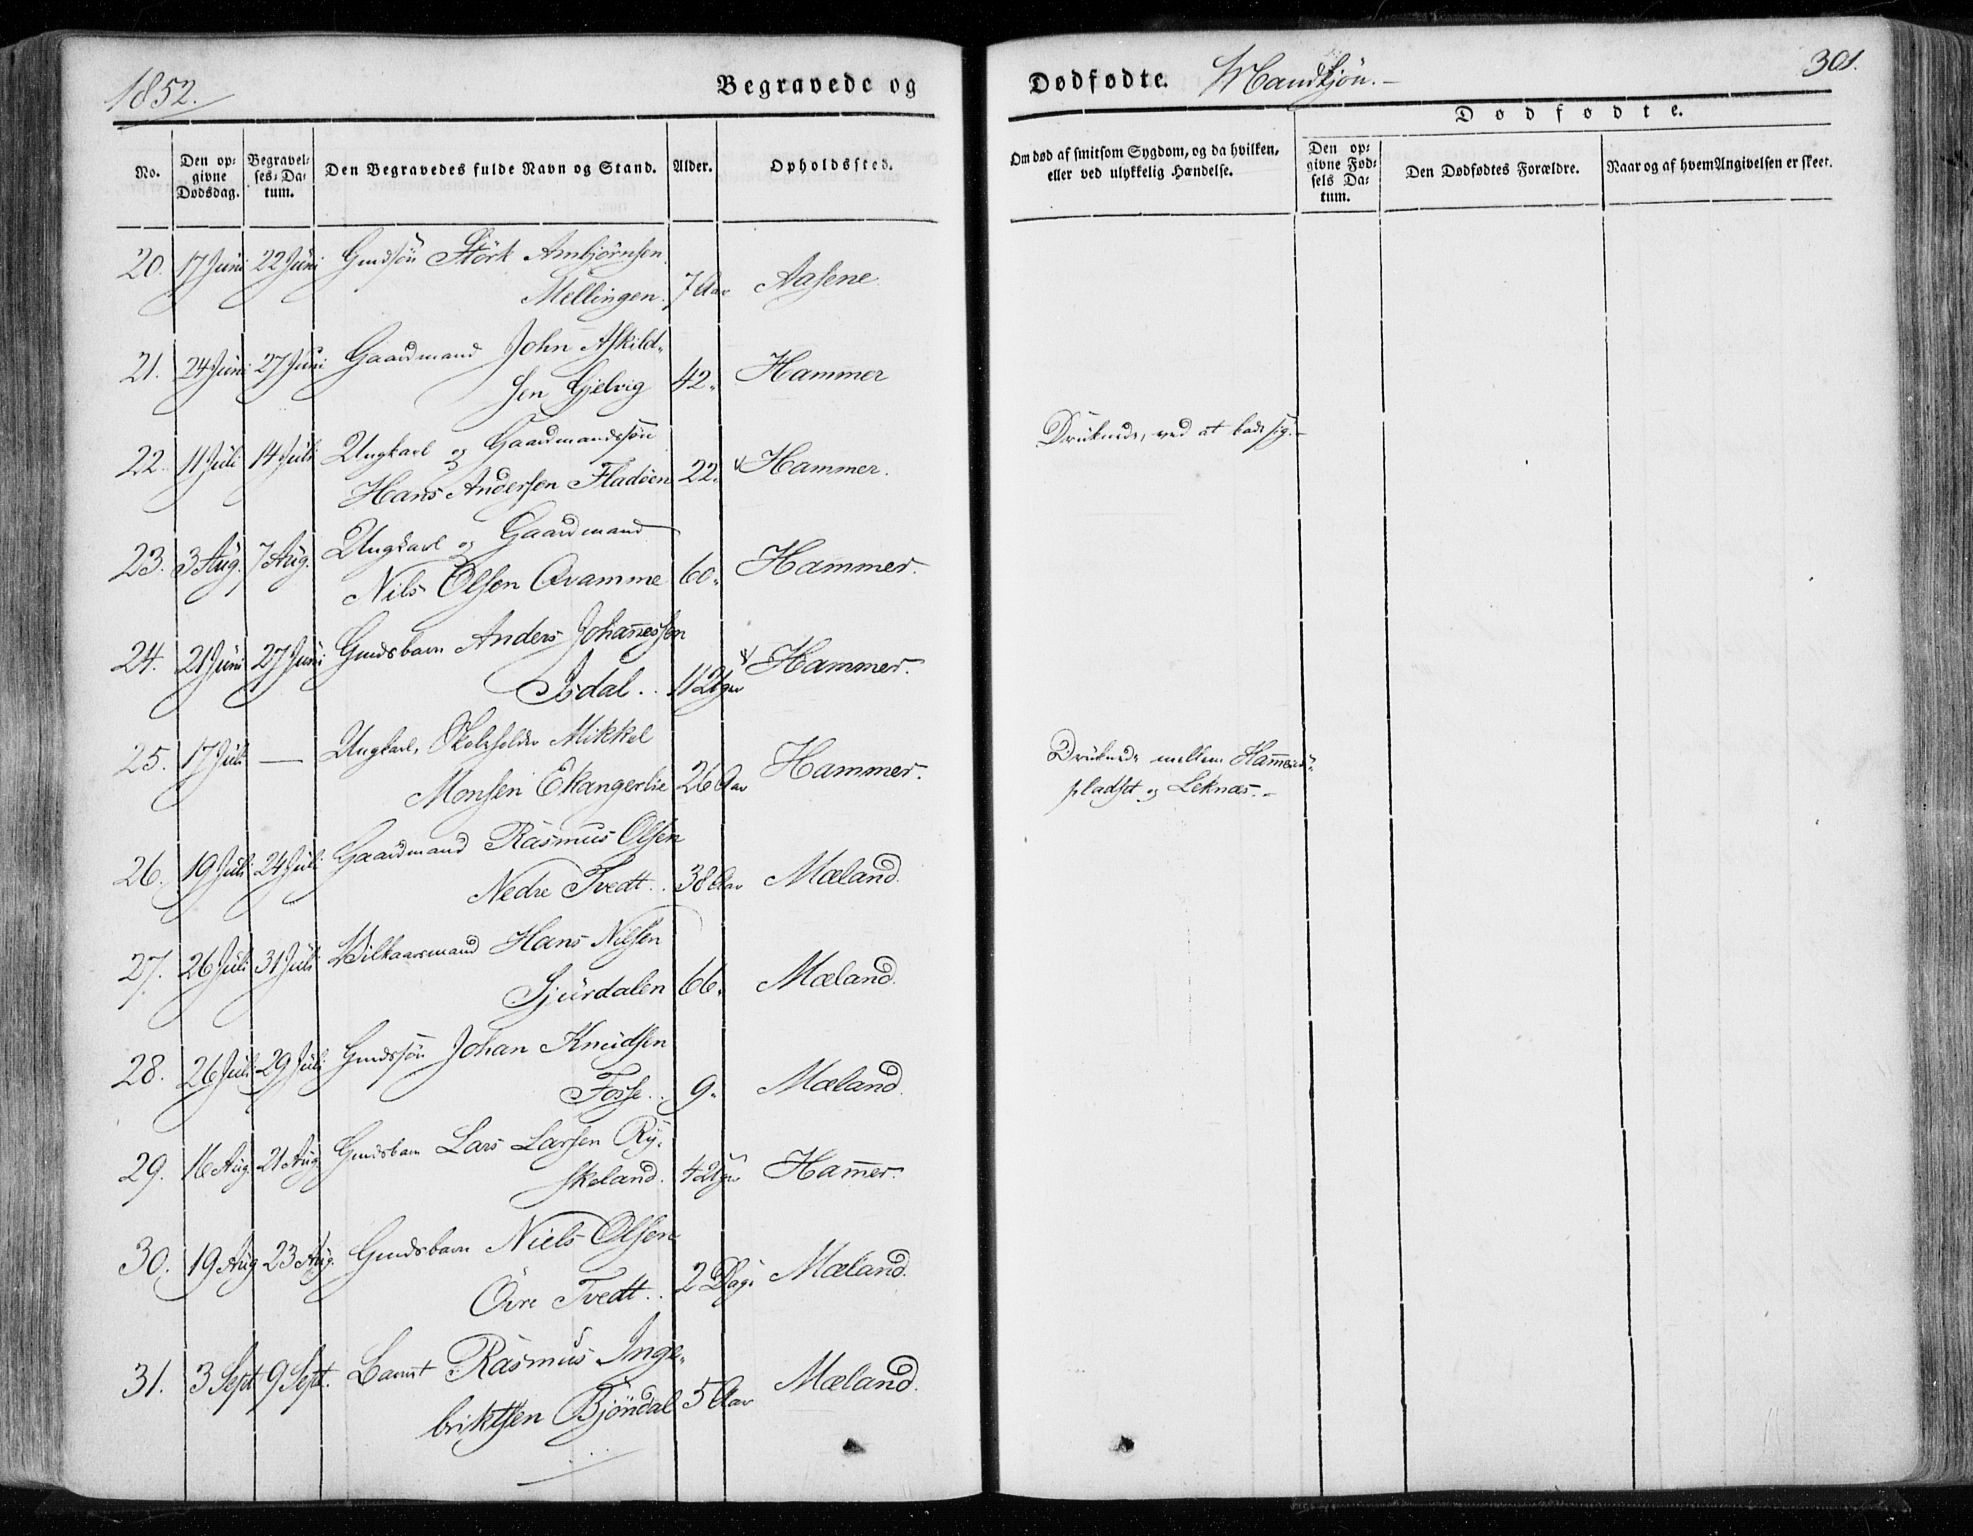 1852.
Begravede og
Dødfødte. Mandkjøn.
301.
No.
Den op-
givne
Dødsdag.
Begravel-
ses-Da-
tum.
Den Begravedes fulde Navn og Stand.
Alder.
Opholdssted.
Om død af smitsom Sygdom, og da hvilken,
eller ved ulykkelig Hændelse.
Dødfødte.
Den op-
givne Fød-
sels Da-
tum.
Den Dødfødtes Forældre.
Naar og af hvem Angivelsen er skeet.
20. 17 Juni 22 Juni Gmdsøn Störk Arnbjørnsen
Mellingen. 7 Aar Aasene.
21. 24 Juni 27 Juni Gaardmand John Askild-
sen Gjelvig 42. Hammer
22. 11 Juli 14 Juli Ungkarl og Gaardmandssøn
Hans Andersen Fladöen 22. Hammer. Druknede, ved at bade sig.
23. 3 Aug. 7 Aug. Ungkarl og Gaardmand
Nils Olsen Qvamme 60. Hammer.
24. 21 Juni 27 Juni Gmdsbarn Anders Johannessen
Isdal. 11 Uger Hammer.
25. 17 Juli — Ungkarl, Skoleholder Mikkel
Monsen Ekangerlie 26 Aar Hammer. Druknede mellem Hammers-
pladset og Leknæs.
26. 19 Juli 24 Juli Gaardmand Rasmus Olsen
Nedre Tvedt. 38 Aar Mæland.
27. 26 Juli 31 Juli Vilkaarsmand Hans Nilsen
Sjurdalen 66. Mæland.
28. 26 Juli 29 Juli Gmdssøn Johan Knudsen
Fosse. 9. Mæland.
29. 16 Aug. 21 Aug. Gmdsbarn Lars Larsen Ry-
skeland. 4 Uger Hammer.
30. 19 Aug 23 Aug. Gmdsbarn Niels Olsen
Övre Tvedt. 2 Dage Mæland.
31. 3 Sept. 9 Sept. Barnet Rasmus Inge-
briktsen Bjöndal 5 Aar Mæland.